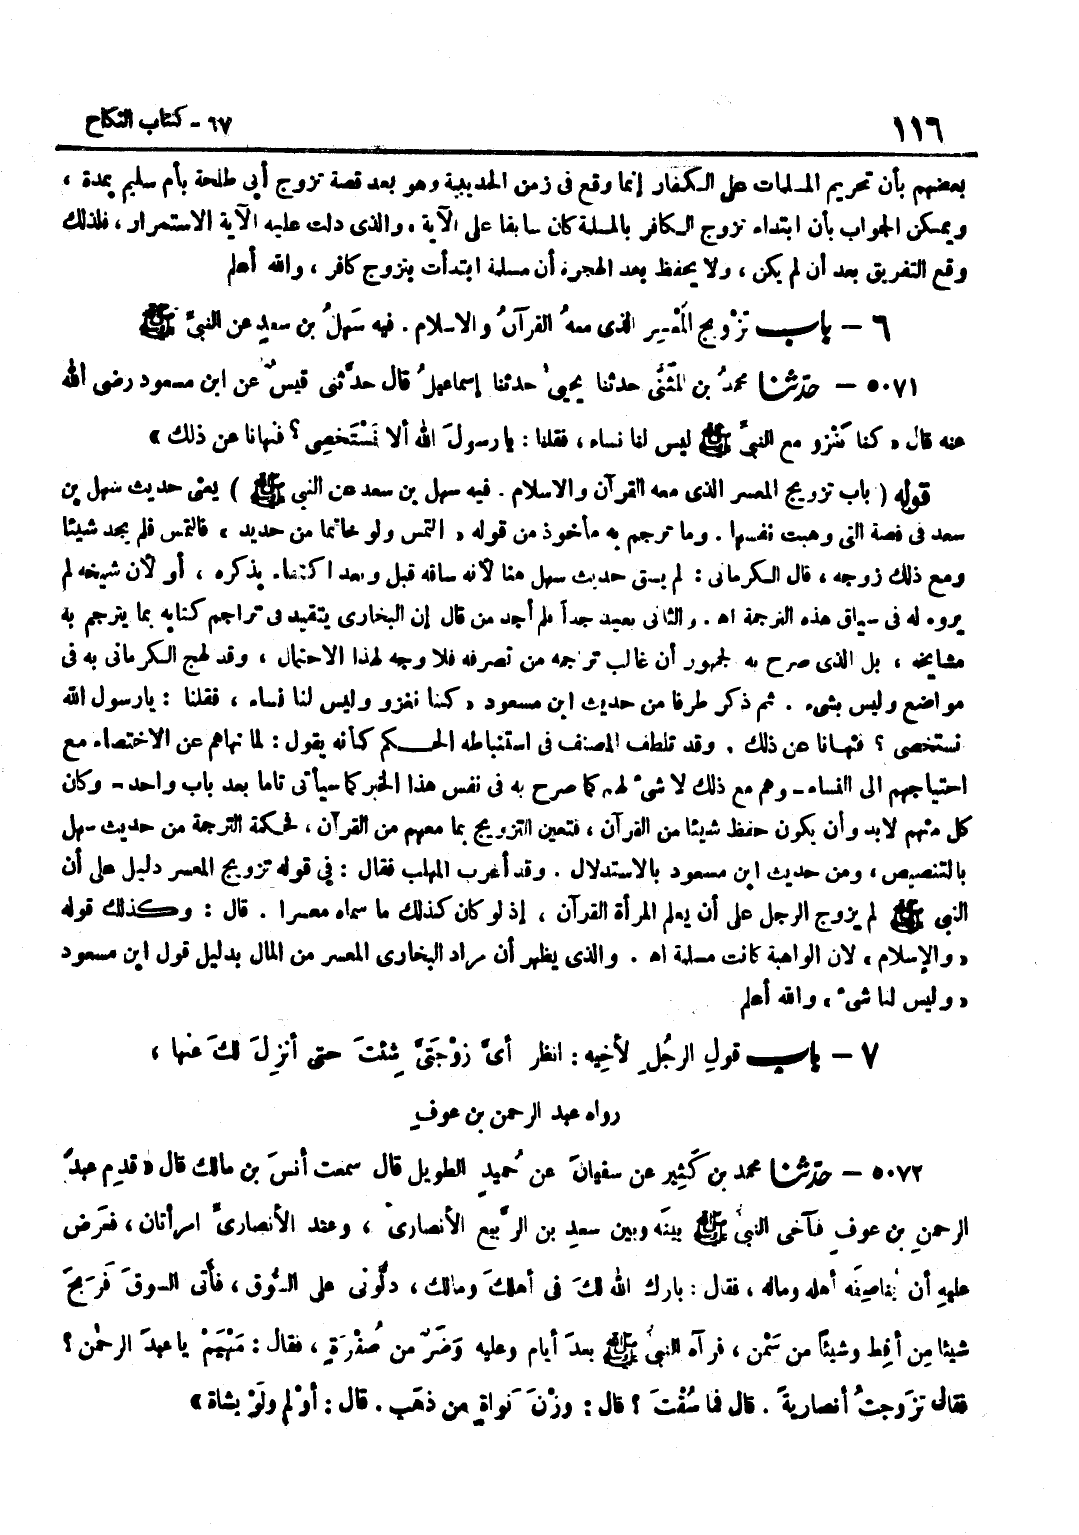 ١١٦
٦٧ - كتاب النكاح
بعضهم بأن تحريم المسلمات على الكفار إنما وقع فى زمن الحديبية وهو بعد قصة تزوج أبى طلحة بأم سليم بمدة ،
ويمكن الجواب بأن ابتداء تزوج الكافر بالمسلمة كان سابقا على الآية ، والذى دلت عليه الآية الاستمرار ، فلذلك
وقع التفريق بعد أن لم يكن ، ولا يحفظ بعد الهجرة أن مسلمة ابتدأت بتزوج كافر ، والله أعلم
٦ - باب تزْويج المُعْسِرِ الذى معهُ القرآنُ والاسلام . فيه سَهلُ بن سعدٍ عن النبىِّ ﷺ
٥٠٧١ - حدّثنا محمدُ بن المُثنَّى حدثنا يحيىٰ حدثنا إسماعيلُ قال حدَّثنى قيسٌ عن ابن مسعود رضى الله
عنه قال « كنا نَغْزو مع النبىِّ ﷺ ليس لنا نساء ، فقلنا : يا رسولَ الله ألا نَسْتَخصِى ؟ فنهانا عن ذلك »
قوله ( باب تزويج المعسر الذى معه القرآن والاسلام . فيه سهل بن سعد عن النبى ﷺ ) يعنى حديث سهل بن
سعد فى قصة التى وهبت نفسها . وما ترجم به مأخوذ من قوله « التمس ولو خاتما من حديد ، فالتمس فلم يجد شيئا
ومع ذلك زوجه ، قال الكرمانى : لم يسق حديث سهل هنا لأنه ساقه قبل وبعد اكتفاء بذكره ، أو لأن شيخه لم
يروه له فى سياق هذه الترجمة اه . والثانى بعيد جداً فلم أجد من قال إن البخارى يتقيد فى تراجم كتابه بما يترجم به
مشايخه ، بل الذى صرح به الجمهور أن غالب تراجمه من تصرفه فلا وجه لهذا الاحتمال ، وقد لهج الكرمانى به فى
مواضع وليس بشىء . ثم ذكر طرفا من حديث ابن مسعود « كنا نغزو وليس لنا نساء ، فقلنا : يا رسول الله
نستخصى ؟ فنهانا عن ذلك . وقد تلطف المصنف فى استنباطه الحكم كأنه يقول : لما نهاهم عن الاختصاء مع
احتياجهم الى النساء - وهم مع ذلك لا شىء لهم كما صرح به فى نفس هذا الخبر كما سيأتى تاما بعد باب واحد - وكان
كل منهم لابد وأن يكون حفظ شيئا من القرآن ، فتعين التزويج بما معهم من القرآن ، لحكمة الترجمة من حديث سهل
بالتنصيص ، ومن حديث ابن مسعود بالاستدلال . وقد أغرب المهلب فقال : فى قوله تزويج المعسر دليل على أن
النبى ﷺ لم يزوج الرجل على أن يعلم المرأة القرآن ، إذ لو كان كذلك ما سماه معسرا . قال : وكذلك قوله
« والإسلام ، لان الواهبة كانت مسلمة اه . والذى يظهر أن مراد البخارى المعسر من المال بدليل قول ابن مسعود
« وليس لنا شىء ، والله أعلم
٧ - باب قولِ الرجُلِ لأخيه : انظر أىَّ زوْجَتىَّ شئتَ حتى أنزِلَ لكَ عنها ،
رواه عبد الرحمن بن عوفٍ
٥٠٧٢ - حدّثنا محمد بن كَثيرٍ عن سفيانَ عن حُميدٍ الطويل قال سمعت أنسَ بن مالك قال « قدِم عبدُ
الرحمنِ بن عوفٍ فآخى النبىُّ ﷺ بينَه وبين سعدِ بن الرَّبيع الأنصارىِّ ، وعند الأنصارىِّ امرأتان ، فعرَض
عليهِ أن يُناصِفَه أهله وماله ، فقال : بارك اللهُ لكَ فى أهلكَ ومالك ، دلُّونى على السُّوق ، فأتى السوقَ فَرَبحَ
شيئا مِن أقِط وشيئاً من سَمْن ، فرآه النبىُّ ﷺ بعدَ أيام وعليه وَضَرٌ من صُفْرَةٍ ، فقال : مَهْيَمْ يا عبدَ الرحمٰن ؟
فقال تزَوجتُ أنصاريةً . قال فما سُقْتَ ؟ قال : وزْنَ نَواةٍ من ذهَب . قال : أوْلم ولَوْ بشاة »